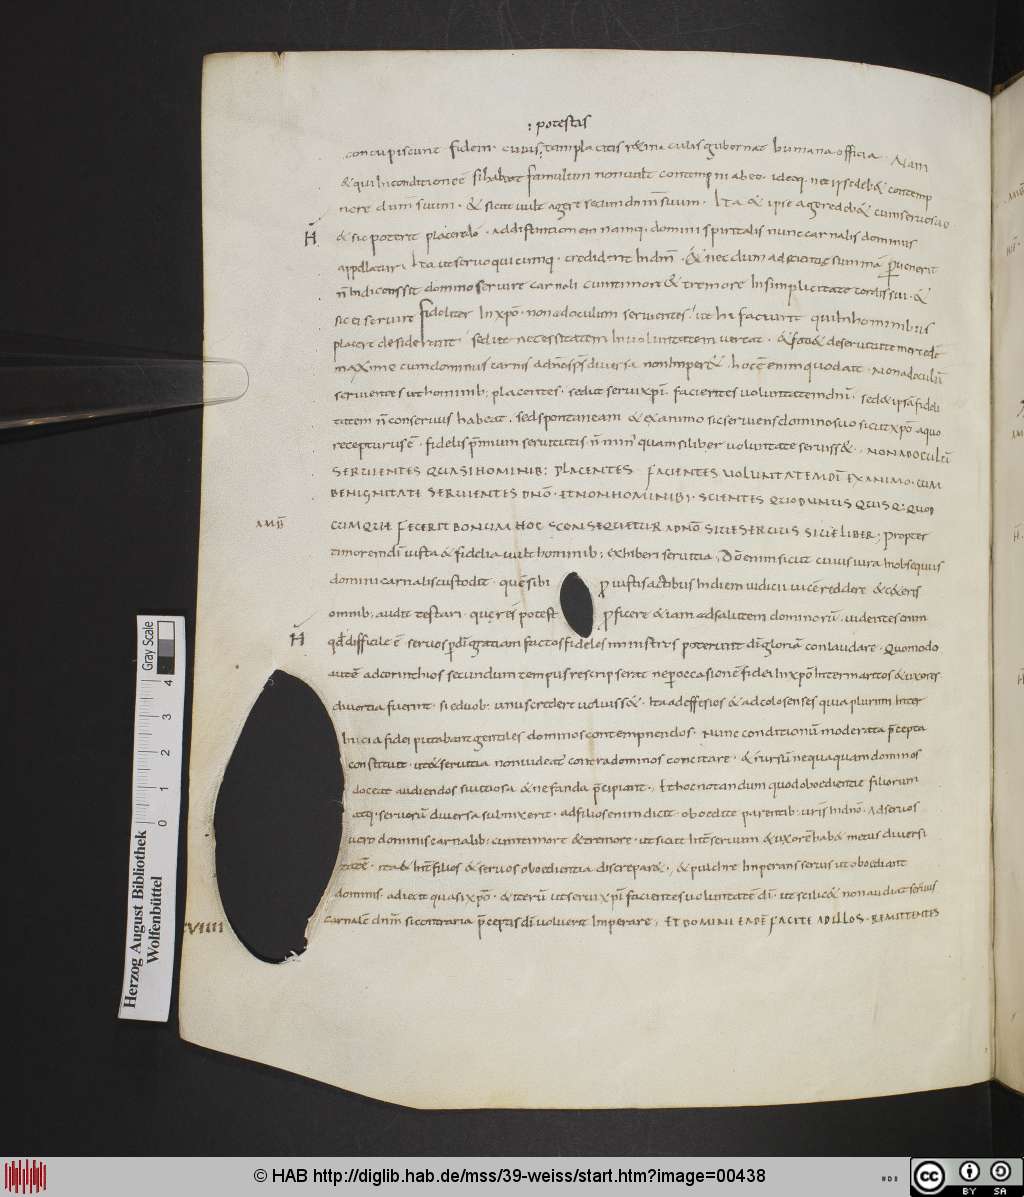 : potestis
concupiscunt fidem. cuius tam placitis & miraculis gubernat humana officia. Nam
& qui hi conditione ē si habeat famulum non uult contempni ab eo. ideoq. nec ipse deb& contemp
nere dnm̄ suum. & sicut uult agere secum dnm̄ suum. Ita & ipse agere deb& cum seruo suo
H̄ & sic poterit placere dō. Ad distinctionem namq. domini spiritalis nunc carnalis dominus
appellatur. Ita ut seruo quicumq. crediderit in dnm̄. & nec dum ad scientiae summā peruenerit
n̄ indicens sit domino seruire carnali cum timore & tremore In simplicitate cordis sui. &
sic ei seruire fideliter In xp̄o. non ad oculum seruientes. ut hi faciunt qui In hominibus
placere desiderant sed ut necessitatem In uoluntatem uertat. & faciat de seruitute mercedē
maxime cum dominus carnis ad nos sp̄s diuersa non imper&. hoc ē enim quod ait. Non ad oculū
seruientes ut hominib; placentes. sed ut serui xp̄i. facientes uoluntatem dn̄i. sed & ipsā fideli
tatem n̄ conseruus habeat. sed spontaneam & ex animo sic seruiens domino suo sicut xp̄o a quo
recepturus ē. fidelis p̄mium seruitutis n̄ min' quam si liber uoluntate seruiss&. NON AD OCULŪ
SERUIENTES QUASI HOMINIB; PLACENTES FACIENTES UOLUNTATEM DĪ EX ANIMO. CUM
BENIGNITATE SERUIENTES DNŌ. ET NON HOMINIB; SCIENTES QUOD UNUSQUISQ: QUOD
AMB̄ CUMQUE FECERIT BONUM HOC CONSEQUETUR A DNŌ SIUE SERUUS SIUE LIBER; Propter
timorem dī iusta & fidelia uult hominib; exhiberi seruitia. Dō enim sicut cuius iura In obsequiis
domini carnalis custodit. quē sibi p iustis actibus In diem iudicii uicē reddere & c&eris
omnib; audit testari. que res potest pficere & iam ad salutem dominorū. uidentes enim
H̄ qđ difficile ē seruos p dī gratiam factos fideles ministros poterunt dī gloriā conlaudare. Quomodo
autē ad corinthios secundum tempus rescripserat ne p occasionē fidei In xp̄o Inter maritos & uxores
diuortia fierent. si e duob; unus credere uoluiss&. Ita ad effesios & ad colosenses quia plurimi Inter
Initia fidei putabant gentiles dominos contempnendos. Nunc conditionū moderata p̄cepta
constituit. ut & seruitia non uideat contra dominos concitare. & rursū nequaquam dominos
doceat audiendos si uitiosa & nefanda p̄cipiant. Et hoc notandum quod oboedientie filiorum
atq. seruorū diuersa subnixerit. ad filios enim dicit. oboedite parentib; uris In dnō. Ad seruos
uero dominis carnalib; cum timore & tremore. ut sicut Int̄ seruum & uxorē habet metus diuersi
tatē. ita & Int̄ filios & seruos oboedientia discrepar&. & pulchre Imperans seruis ut oboediant
dominis. adiecit quasi xp̄o. & iterū ut serui xp̄i facientes uoluntatē dī. ut scilic& non audiat seruus
XVIIII carnalē dnm̄. si contraria p̄ceptis dī uoluerit Imperare; ET DOMINI EADĒ FACITE AD ILLOS. REMITTENTES
Herzog August Bibliothek
Wolfenbüttel
Gray Scale
0 1 2 3 4
© HAB http://diglib.hab.de/mss/39-weiss/start.htm?image=00438
cc BY SA